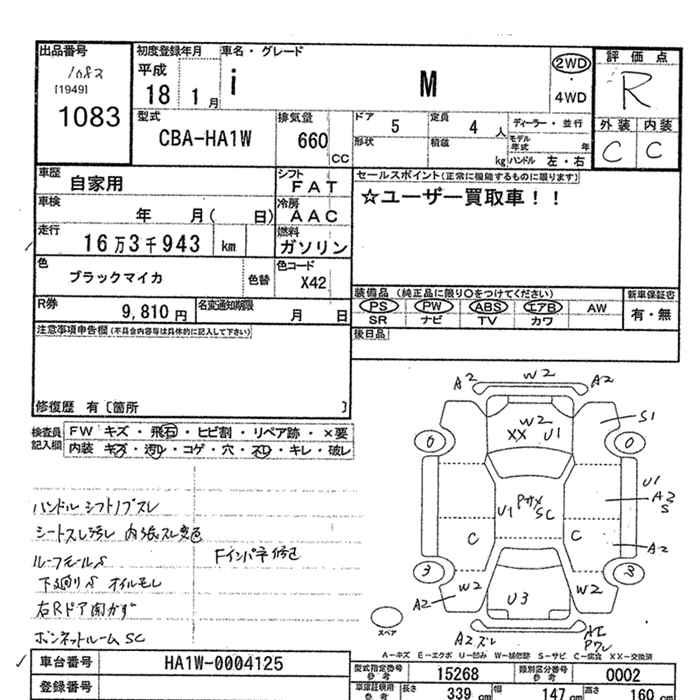 出品番号
1083
[1949]
1083
初度登録年月
平成
18 1月
車名・グレード
i M
2WD
・
4WD
評価点
R
外装 内装
C C
型式
CBA-HA1W
排気量
660
CC
ドア 5
定員 4 人
形状
積載 kg
ディーラー・並行
モデル年式 年
ハンドル 左・右
車歴
自家用
シフト
FAT
セールスポイント(正常に機能するものに限ります)
☆ユーザー買取車!!
車検
年 月( 日)
冷房
AAC
走行
16万3千943 km
燃料
ガソリン
色
ブラックマイカ
色替
色コード
X42
装備品 (純正品に限り〇をつけてください)
新車保証書
PS PW ABS エアB AW
有・無
SR ナビ TV カワ
R券
9,810 円
名変通知期限
月 日
後日品
注意事項申告欄(不具合内容等は具体的に記入して下さい)
修復歴 有〔箇所 〕
検査員記入欄
FW キズ・飛石・ヒビ割・リペア跡・×要
内装 キズ・汚レ・コゲ・穴・スレ・キレ・破レ
ハンドル シフトノブスレ
シートスレ汚レ 内張スレ変色
ルーフモールS
Fインパネ修色
下廻りS オイルモレ
右Rドア開かず
ボンネットルームSC
A2 W2 A2
W2
XX U1
S1
0 0
U1
A3
S
U1 SC
C C
A2
3 3
A2 W2 W2
U3
スペア
A2 ズレ
A2
Pワレ
A-キズ E-エクボ U-凹み W-補修跡 S-サビ C-腐食 XX-交換済
車台番号
HA1W-0004125
型式指定番号
参考
15268
類別区分番号
参考
0002
登録番号
車検証記載
参考
長さ
339 cm
幅
147 cm
高さ
160 cm